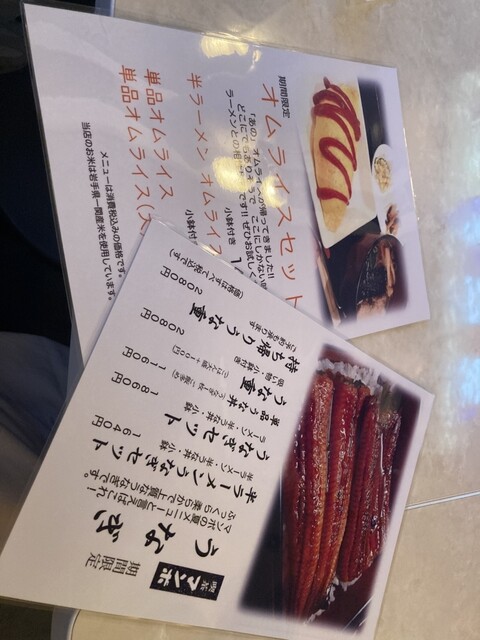 期間限定
オムライスセット
「あの」オムライスが帰ってきました!!
どこにでもありそうで、ここにしかない味
ラーメンとの相 です!!ぜひお試しく
小鉢付き
半ラーメン オムライス
小鉢付
単品オムライス
単品オムライス(大
メニューは消費税込みの価格です。
当店のお米は岩手県一関産米を使用しています。
喫茶 マンボ
期間限定
うなぎ
マンボの夏メニューと言えばこれ!
ふっくら柔らかで上質なうなぎです。
半ラーメンうなぎセット
ラーメン・半うな丼・小鉢
1640円
うなぎセット
ラーメン・半うな丼・小鉢
1860円
単品 うな丼
1160円
うな重
吸い物・小鉢付き
2080円
持ち帰りうな重
ご予約も承ります
2080円
(価格はすべて税込です)